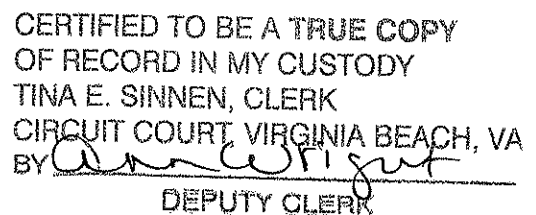 CERTIFIED TO BE A TRUE COPY
OF RECORD IN MY CUSTODY
TINA E. SINNEN, CLERK
CIRCUIT COURT, VIRGINIA BEACH, VA
BY Ann Wright
DEPUTY CLERK